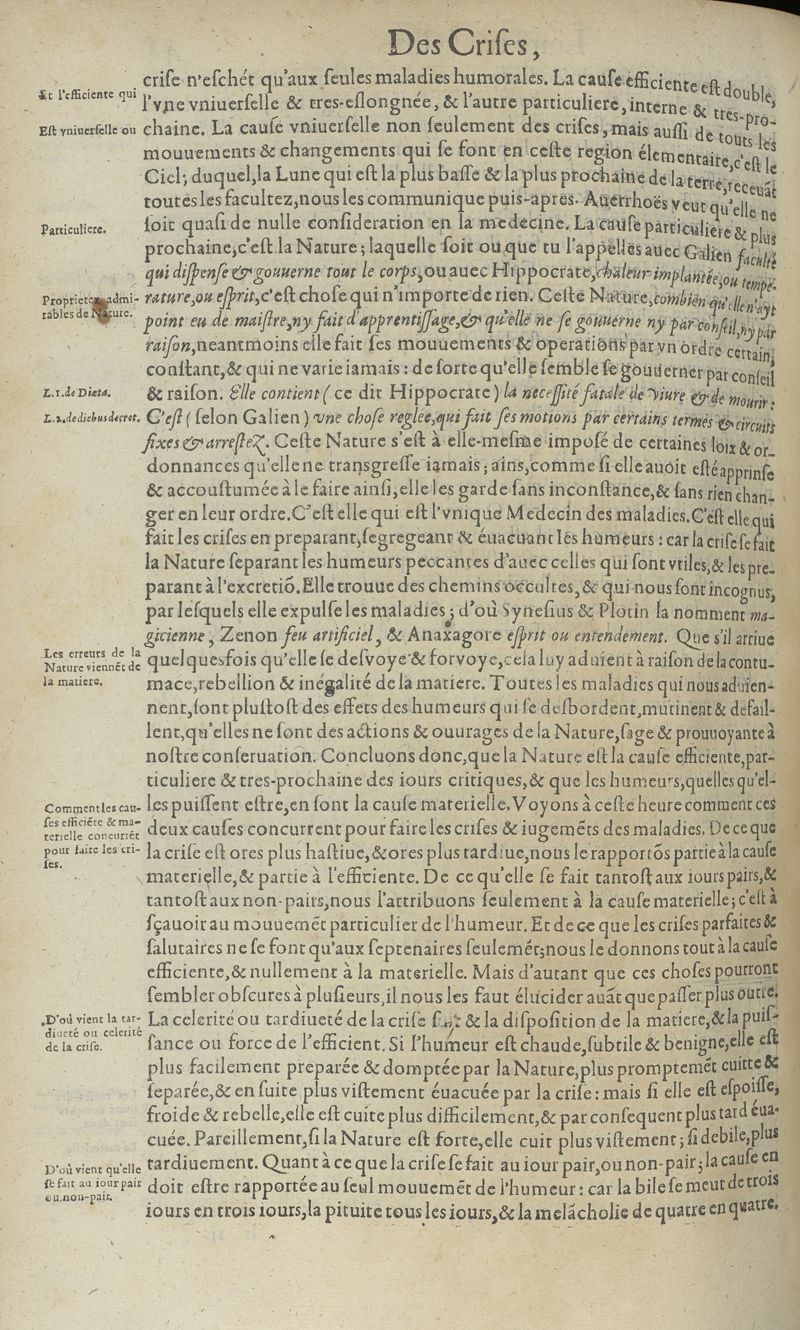 Des Crises,
crise n'eschét qu'aux seules maladies humorales. La cause efficiente est double,
Et l'efficiente qui
l'vne vniuerselle & tres-eslongnée, & l'autre particuliere, interne & tres-pro-
Est vniuerselle ou
chaine. La cause vniuerselle non seulement des crises, mais aussi de touts les
mouuements & changements qui se font en ceste region élementaire, c'est le
Ciel; duquel, la Lune qui est la plus basse & la plus prochaine de la terre, receuāt
toutes les facultez, nous les communique puis-apres. Auerrhoës veut qu'elle ne
Particuliere.
soit quasi de nulle consideration en la medecine. La cause particuliere & plus
prochaine, c'est la Nature; laquelle soit ou que tu l'appelles auec Galien faculté
qui dispense & gouuerne tout le corps, ou auec Hippocrate, chaleur implantée, ou tempe-
Proprietez admi-
rables de Nature.
rature, ou esprit, c'est chose qui n'importe de rien. Ceste Nature, combien qu'elle n'ayt
point eu de maistre, ny fait d'apprentissage, & qu'elle ne se gouuerne ny par conseil, ny par
raison, neantmoins elle fait ses mouuements & operations par vn ordre certain,
constant, & qui ne varie iamais: de sorte qu'elle semble se gouuerner par conseil
L. 1. de Diæta.
& raison. Elle contient (ce dit Hippocrate) la necessité fatale de viure & de mourir:
L. 2. de diebus decret.
C'est (selon Galien) vne chose reglee, qui fait ses motions par certains termes & circuits
fixes & arrestez. Ceste Nature s'est à elle-mesme imposé de certaines loix & or-
donnances qu'elle ne transgresse iamais; ains, comme si elle auoit esté apprinse
& accoustumée à le faire ainsi, elle les garde sans inconstance, & sans rien chan-
ger en leur ordre. C'est elle qui est l'vnique Medecin des maladies. C'est elle qui
fait les crises en preparant, segregeant & éuacuant les humeurs: car la crise se fait
la Nature separant les humeurs peccantes d'auec celles qui sont vtiles, & les pre-
parant à l'excretiō. Elle trouue des chemins occultes, & qui nous sont incognus,
par lesquels elle expulse les maladies; d'où Synesius & Plotin la nomment ma-
gicienne, Zenon feu artificiel, & Anaxagore esprit ou entendement. Que s'il arriue
Les erreurs de la
Nature viennēt de
la matiere.
quelquesfois qu'elle se desvoye & forvoye, cela luy aduient à raison de la contu-
mace, rebellion & inégalité de la matiere. Toutes les maladies qui nous aduien-
nent, sont plustost des effets des humeurs qui se desbordent, mutinent & defail-
lent, qu'elles ne sont des actions & ouurages de la Nature, sage & prouuoyante à
nostre conseruation. Concluons donc, que la Nature est la cause efficiente, par-
ticuliere & tres-prochaine des iours critiques, & que les humeurs, quelles qu'el-
Comment les cau-
ses efficiēte & ma-
terielle concurrēt
pour faire les cri-
ses.
les puissent estre, en sont la cause materielle. Voyons à ceste heure comment ces
deux causes concurrent pour faire les crises & iugemēts des maladies. De ce que
la crise est ores plus hastiue, & ores plus tardiue, nous le rapportōs partie à la cause
materielle, & partie à l'efficiente. De ce qu'elle se fait tantost aux iours pairs, &
tantost aux non-pairs, nous l'attribuons seulement à la cause materielle; c'est à
sçauoir au mouuemēt particulier de l'humeur. Et de ce que les crises parfaites &
salutaires ne se font qu'aux septenaires seulemēt; nous le donnons tout à la cause
efficiente, & nullement à la materielle. Mais d'autant que ces choses pourront
sembler obscures à plusieurs, il nous les faut élucider auāt que passer plus outre.
D'où vient la tar-
diueté ou celerité
de la crise.
La celerité ou tardiueté de la crise suit & la disposition de la matiere, & la puis-
sance ou force de l'efficient. Si l'humeur est chaude, subtile & benigne, elle est
plus facilement preparée & domptée par la Nature, plus promptemēt cuitte &
separée, & en suite plus vistement éuacuée par la crise: mais si elle est espoisse,
froide & rebelle, elle est cuite plus difficilement, & par consequent plus tard éua-
cuée. Pareillement, si la Nature est forte, elle cuit plus vistement; si debile, plus
D'où vient qu'elle
se fait au iour pair
ou non-pair.
tardiuement. Quant à ce que la crise se fait au iour pair, ou non-pair; la cause en
doit estre rapportée au seul mouuemēt de l'humeur: car la bile se meut de trois
iours en trois iours, la pituite tous les iours, & la melācholie de quatre en quatre.